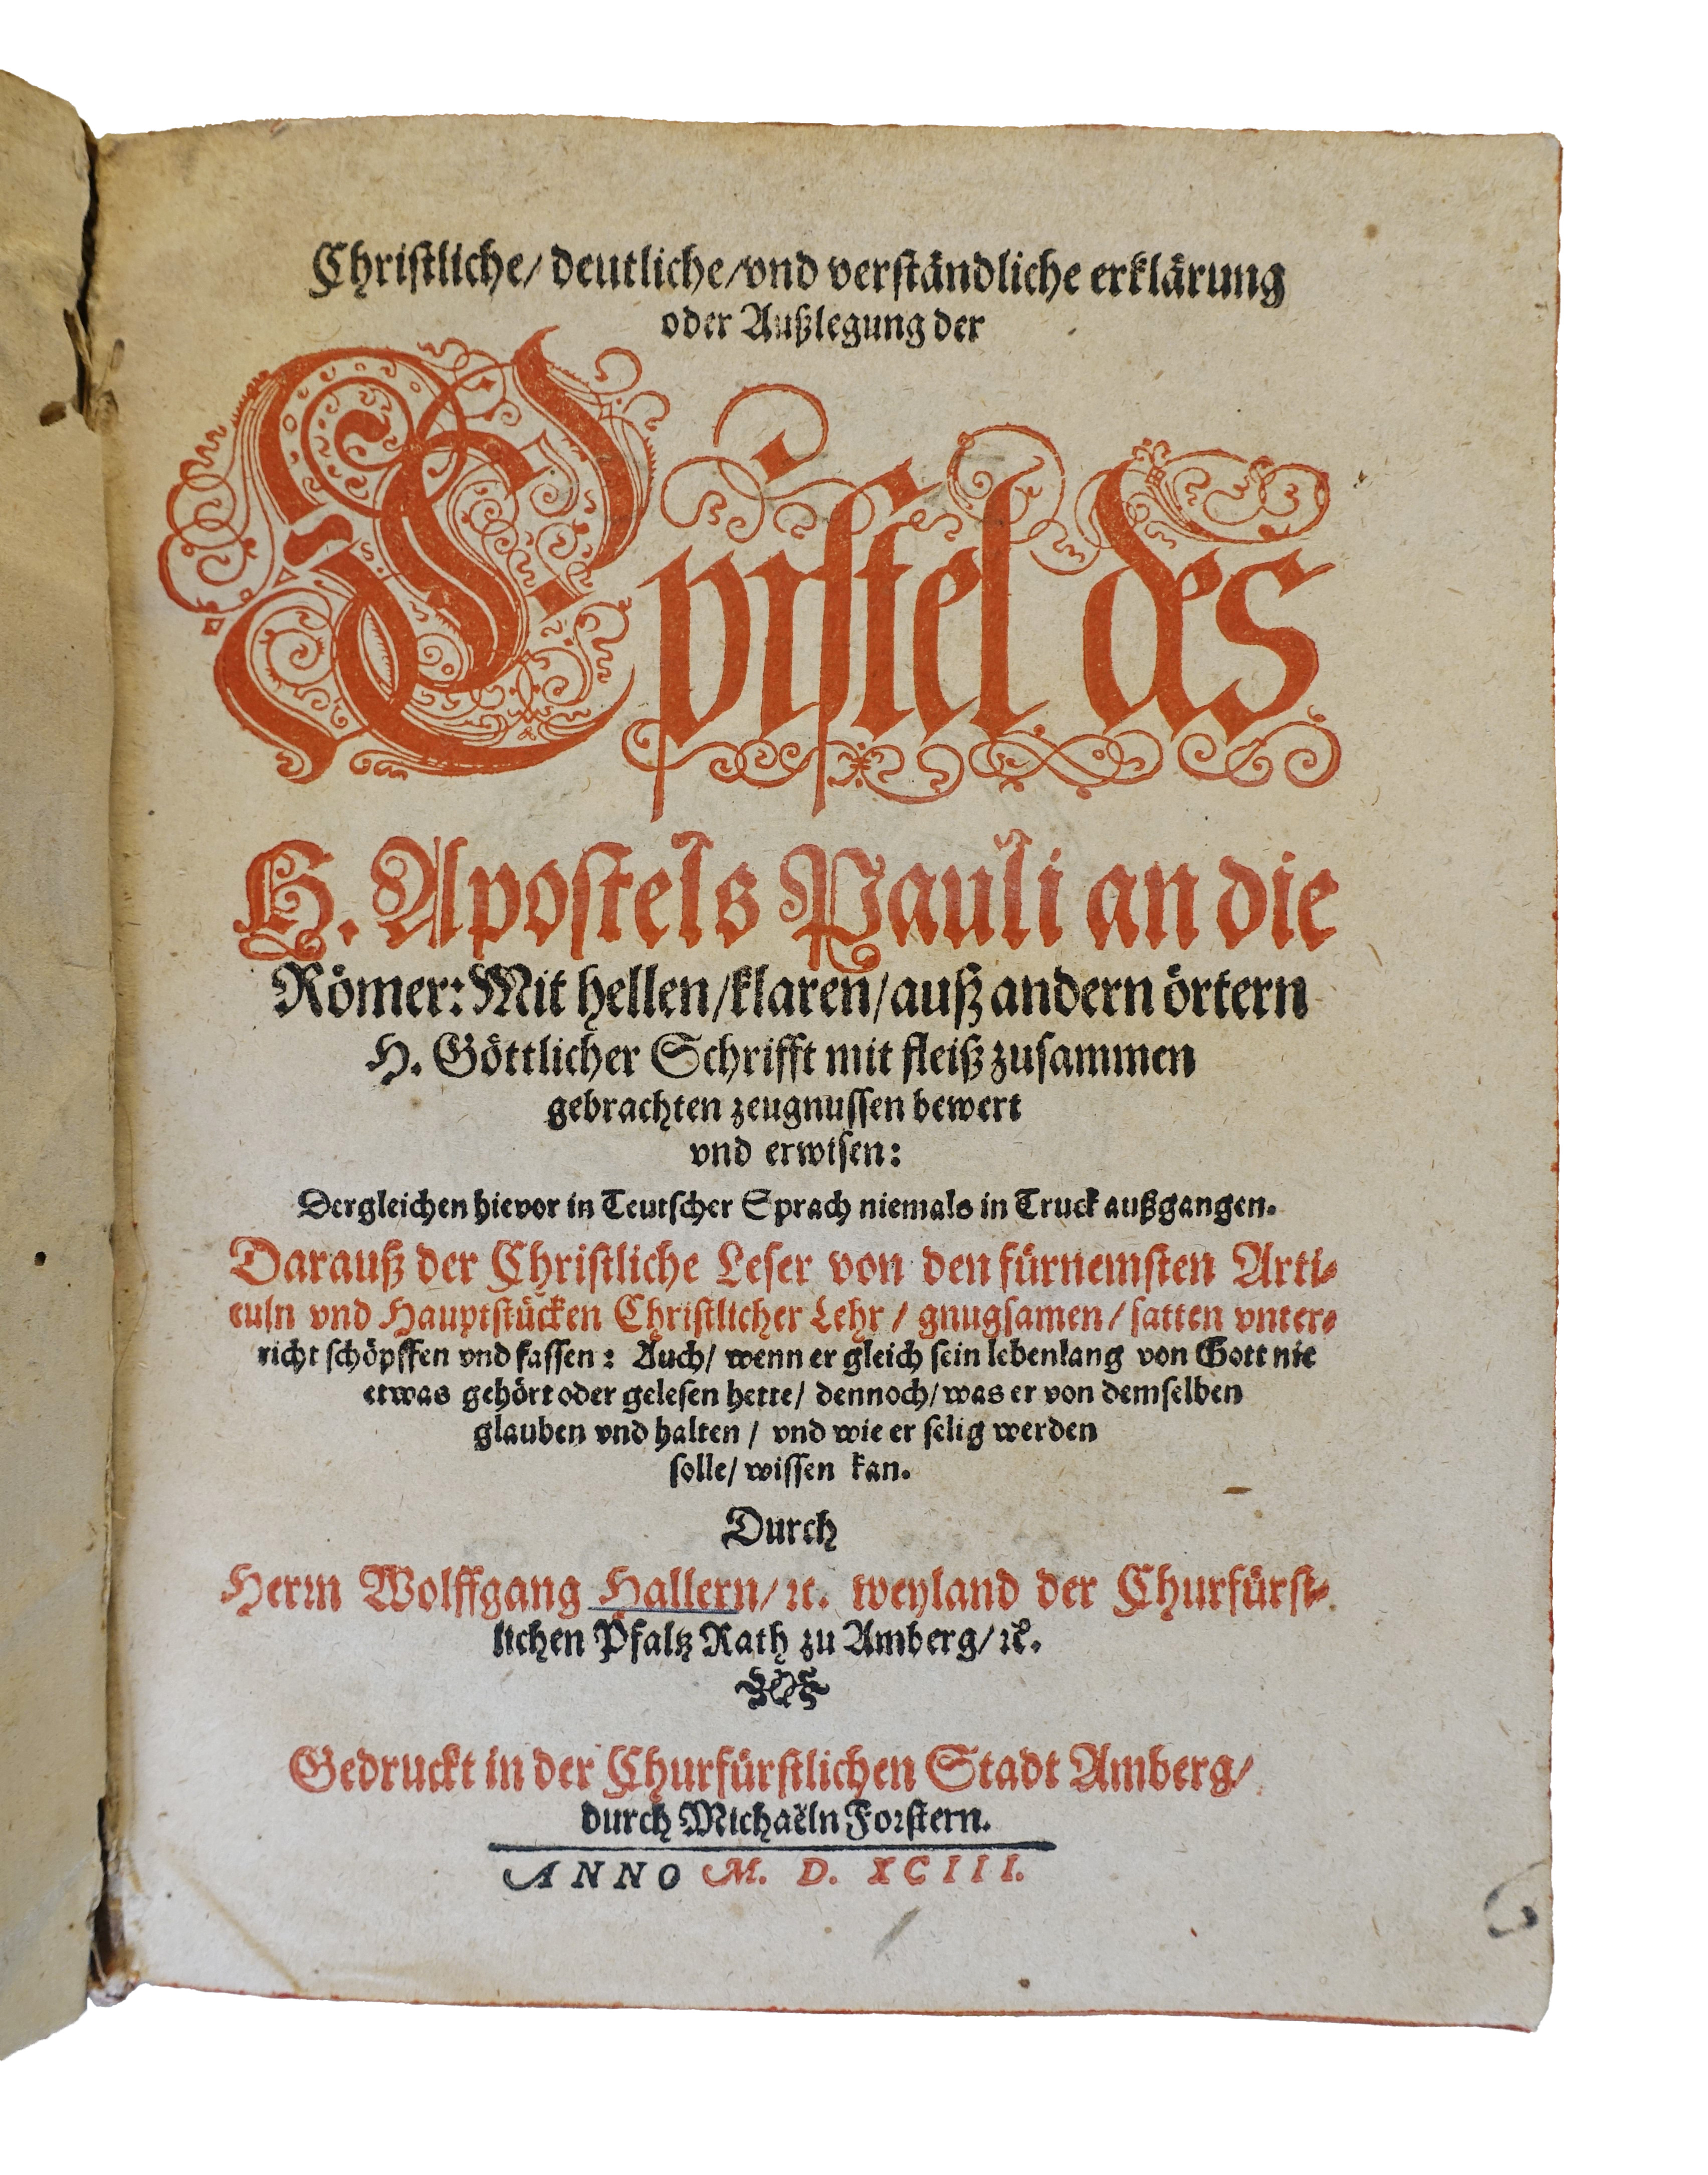 Christliche/ deutliche/vnd verständliche erklärung
oder Außlegung der
Epistel des
H. Apostels Pauli an die
Römer: Mit hellen/klaren/auß andern örtern
H. Göttlicher Schrifft mit fleiß zusammen
gebrachten zeugnussen bewert
vnd erwisen:
Dergleichen hievor in Teutscher Sprach niemals in Truck außgangen.
Darauß der Christliche Leser von den fürnemsten Arti-
culn vnd Hauptstücken Christlicher Lehr / gnugsamen/ satten vnter-
richt schöpffen vnd fassen: Auch/ wenn er gleich sein lebenlang von Gott nie
etwas gehört oder gelesen hette/ dennoch/was er von demselben
glauben vnd halten / vnd wie er selig werden
solle/ wissen kan.
Durch
Herrn Wolffgang Hallern/ ꝛc. weyland der Churfürst-
lichen Pfaltz Rath zu Amberg/ ꝛc.
Gedruckt in der Churfürstlichen Stadt Amberg/
durch Michaëln Forstern.
ANNO M. D. XCIII.